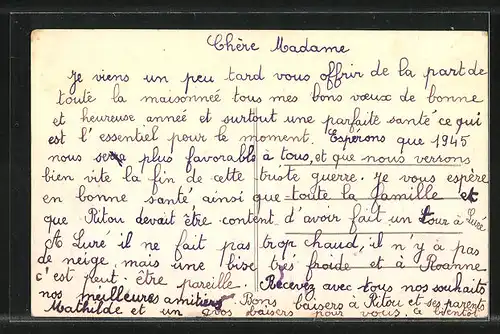 Chère Madame
Je viens un peu tard vous offrir de la part de
toute la maisonneé tous mes bons vœux de bonne
et heureuse anneé et surtout une parfaite santé ce qui
est l'essentiel pour le moment. Espérons que 1945
nous sera plus favorable à tous, et que nous verrons
bien vite la fin de cette triste guerre. Je vous espère
en bonne santé ainsi que toute la famille et
que Pitou devait être content d'avoir fait un tour à Luré
A Luré il ne fait pas trop chaud, il n'y à pas
de neige, mais une bise très froide et à Roanne
c'est peut-être pareille. Recevez avec tous nos souhaits
nos meilleures amitiés Bons baisers à Pitou et ses parents
Mathilde et un gros baisers pour vous, à bientôt